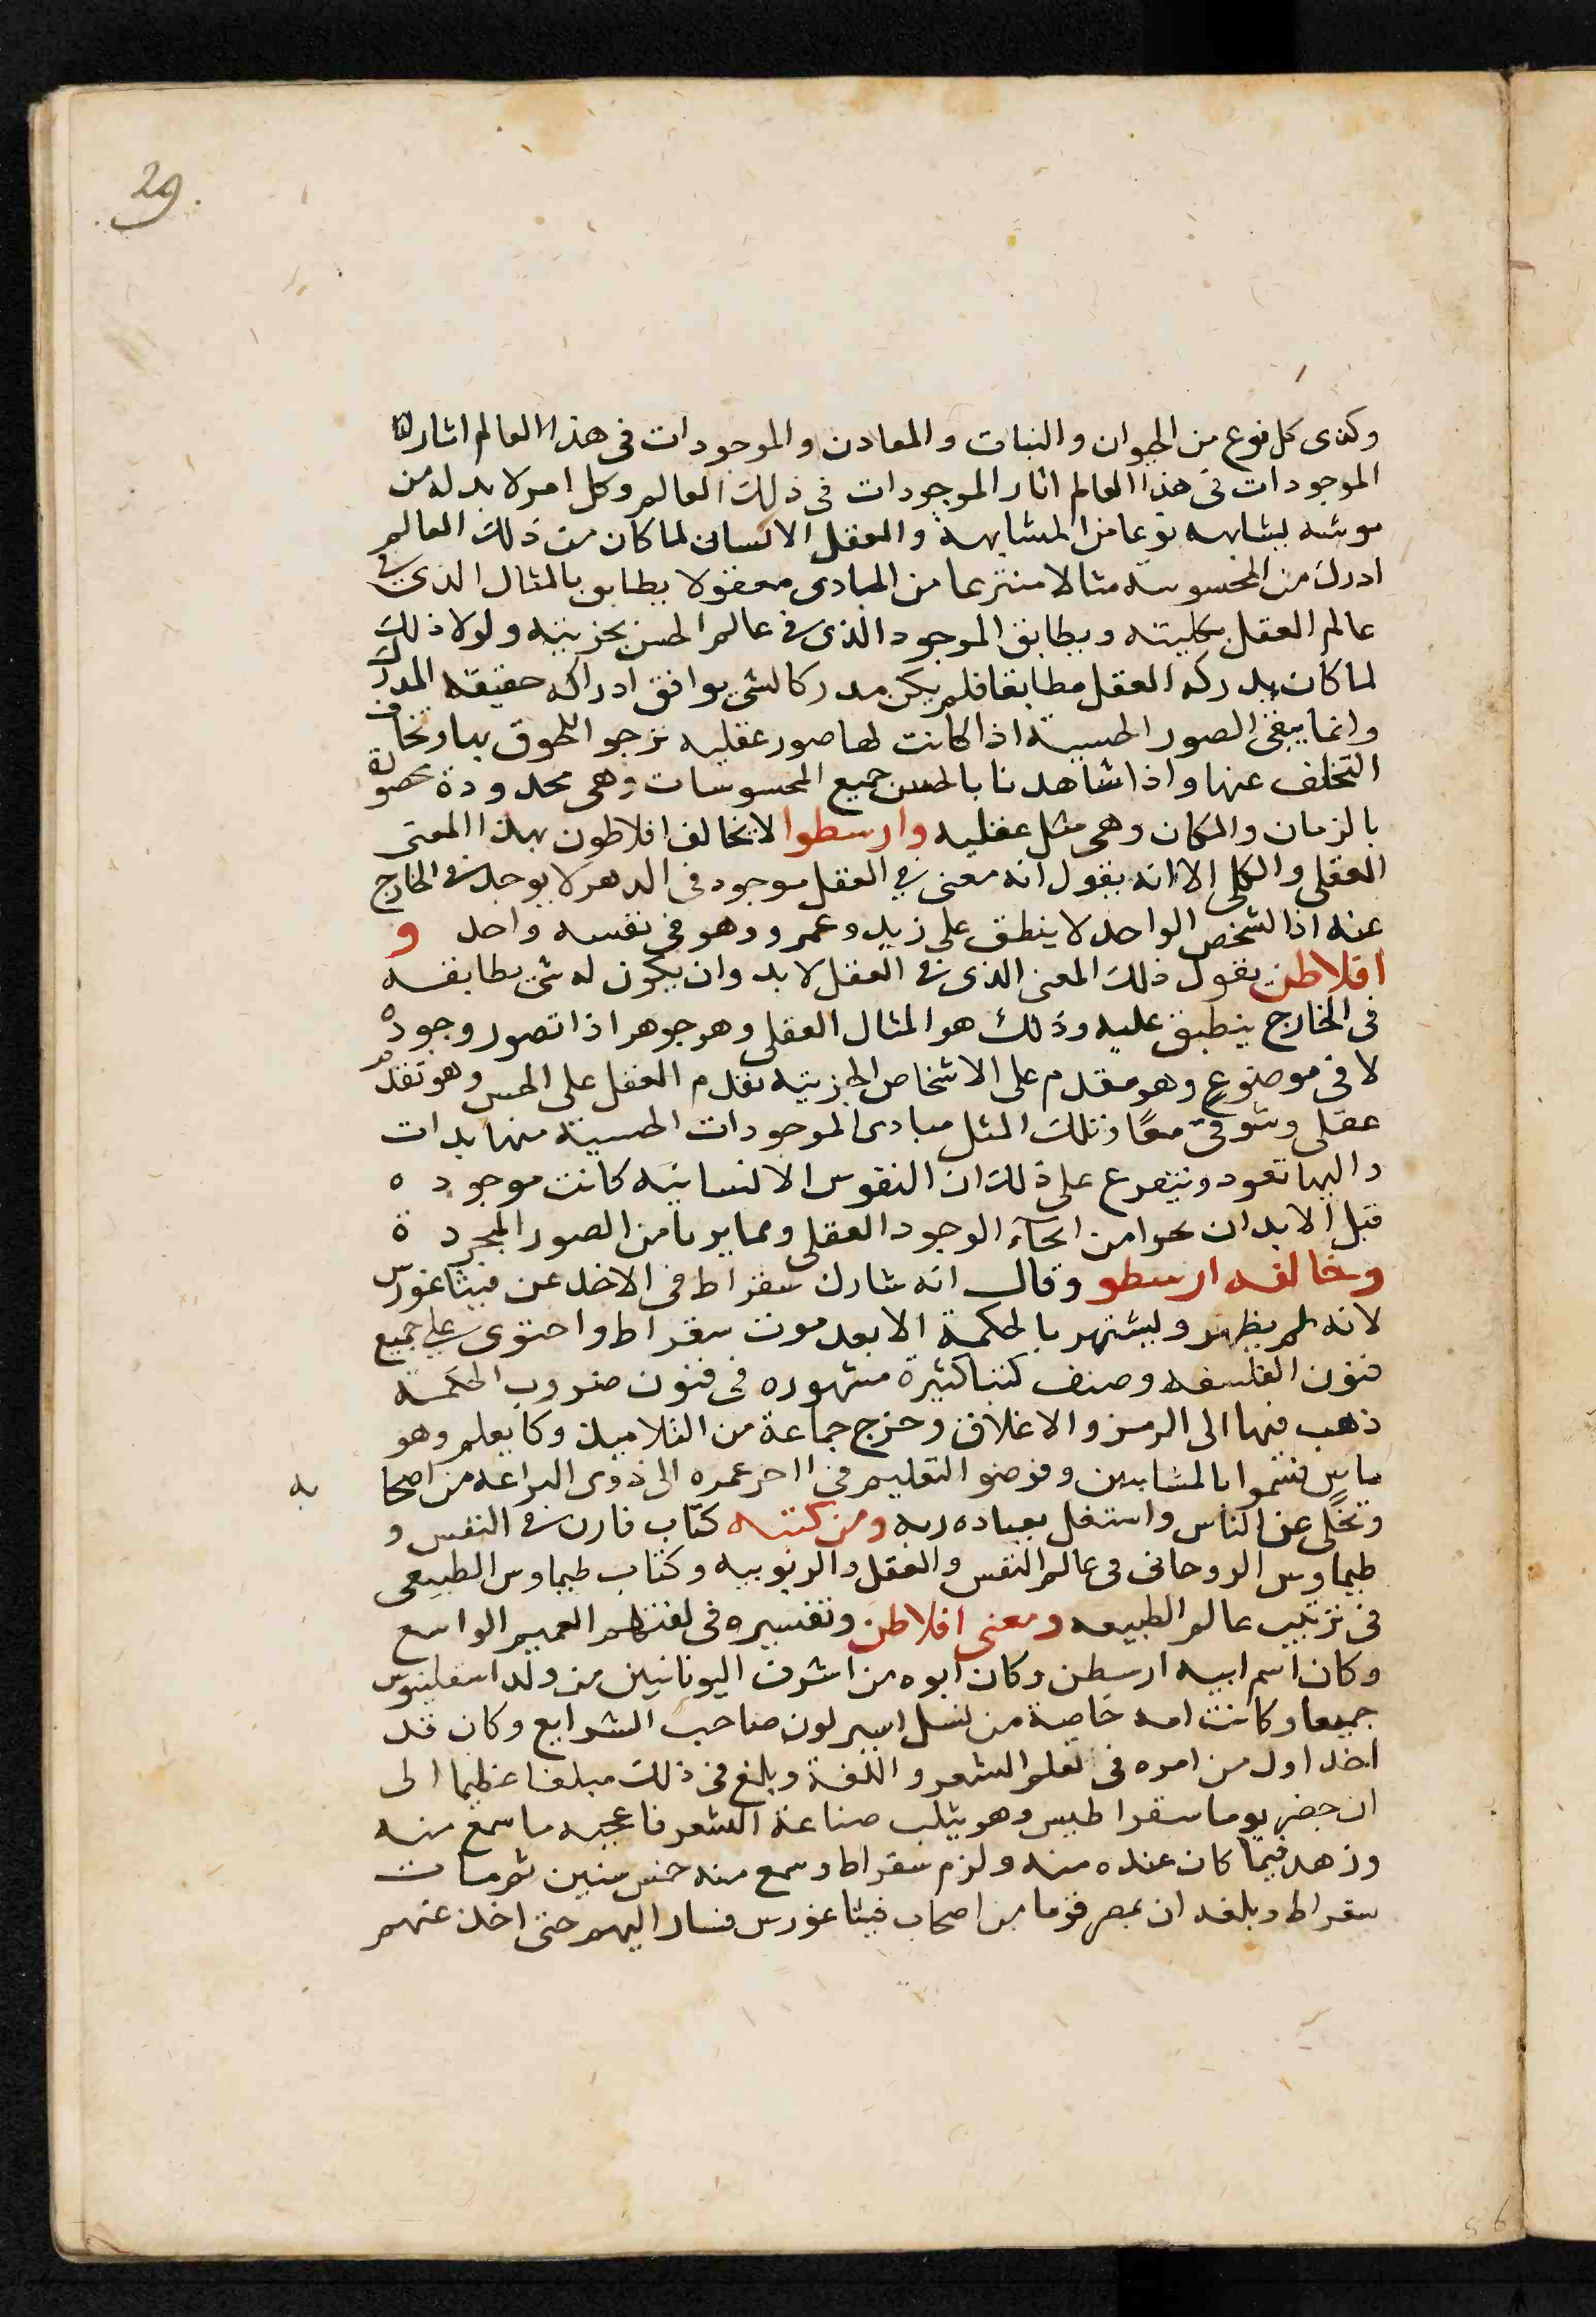 29.
وكذى كل نوع من الحيوان والنبات والمعادن والموجودات فى هذا العالم اثار لنا
الموجودات فى هذا العالم اثار الموجودات فى ذلك العالم وكل امر لا بد له من
موشه يشابهه نوعا من المشابهة والعقل الانسان لما كان من ذلك العالم
ادرك من المحسوسه مثالا منتزعا من المبادى معقولا يطابق بالمثال الذى فى
عالم العقل بكليته ويطابق الموجود الذى فى عالم الحس بجزييته ولولا ذلك
لما كان يدركه العقل مطابقا فلم يكن مدركا لشى يوافق ادراكه حقيقه المدرك
وانما يبقى الصور الحسيية اذا كانت لها صور عقليه نرجو اللحوق بها ونخاف
التخلف عنها واذا شاهدنا بالحس جميع المحسوسات وهى محدودة محصورة
بالزمان والمكان وهى مثل عقليه وارسطوا لا يخالف افلاطون بهذا المعنى
العقلى والكلى الا انه يقول انه معنى فى العقل موجود فى الدهر لا يوجد فى الخارج
عنه اذ الشخص الواحد لا ينطق على زيد وعمرو وهو فى نفسه واحد و
افلاطن يقول ذلك المعنى الذى فى العقل لا بد وان يكون له شى يطابقه
فى الخارج ينطبق عليه وذلك هو المثال العقلى وهو جوهر اذا تصور وجوده
لا فى موضوع وهو مقدم على الاشخاص الجزييه تقدم العقل على الحس وهو تقدم
عقلى وشوقى معًا وتلك المثل مبادى الموجودات الحسية منها بدات
واليها تعود ويتفرع على ذلك ان النفوس الانسانيه كانت موجوده
قبل الابدان نحوا من انحآء الوجود العقلى وممايرنا من الصور المجردة
وخالفه ارسطو وقال انه شارك سقراط فى الاخذ عن فيثاغورس
لانه لم يظهر ويشتهر بالحكمة الا بعد موت سقراط واحتوى على جميع
فنون الفلسفه وصنف كتبا كثيرة مشهوره فى فنون ضروب الحكمة
ذهب فيها الى الرمز والاغلاق وخرج جماعة من التلاميذ وكا يعلم وهو
ماس فتموا بالمشابيين وفوضو التعليم فى اخر عمره الى ذوى البراعه من اصحا به
وتخلى عن الناس واشتغل بعباده ربه ومن كتبه كتاب فارن فى النفس و
طيماوس الروحانى فى عالم النفس والعقل والربوبيه وكتاب طيماوس الطبيعى
فى ترتيب عالم الطبيعه ومعنى افلاطن وتفسيره فى لغتهم العميم الواسع
وكان اسم ابيه ارسطن وكان ابوه من اشرف اليونانيين من ولد اسقلبيوس
جميعا وكانت امه خاصة من نسل اسيرلون صاحب الشرايع وكان قد
اخذ اول من امره فى تعلم الشعر واللغة وبلغ فى ذلك مبلغا عظيما الى
ان حضر يوما سقراطيس وهو يثلب صناعة الشعر فاعجبه ما سمع منه
وزهد فيما كان عنده منه ولزم سقراط وسمع منه خمس سنين ثم مات
سقراط وبلغه ان بمصر قوما من اصحاب فيثاغورس فسار اليهم حتى اخذ عنهم
56